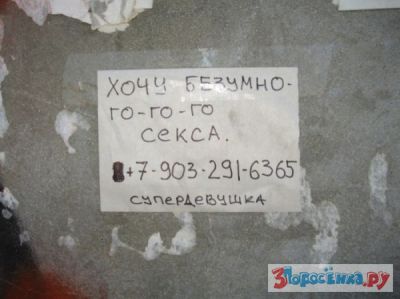 ХОЧУ БЕЗУМНО-
ГО-ГО-ГО
СЕКСА.
+7-903-291-6365
СУПЕРДЕВУШКА
3Поросёнка.ру